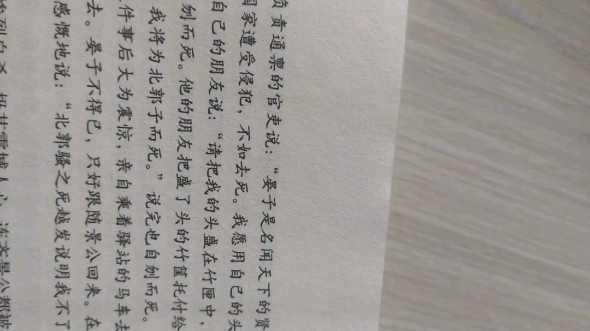 负责通禀的官吏说：“晏子是名闻天下的贤
国家遭受侵犯，不如去死。我愿用自己的头
自己的朋友说：“请把我的头盛在竹匣中，
刎而死。他的朋友把盛了头的竹筐托付给
我将为北郭子而死。”说完也自刎而死。
件事后大为震惊，亲自乘着驿站的马车去
去。晏子不得已，只好跟随景公回来。在
感慨地说：“北郭骚之死越发说明我不了
人心，连齐景公都被